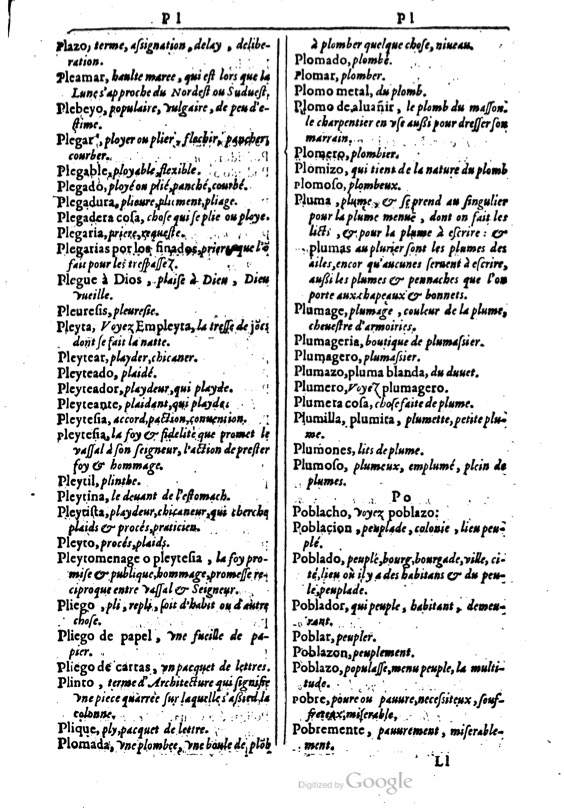 Pl
Pl
Plazo, terme, assignation, delay, delibe-
ration.
Pleamar, haulte maree, qui est lors que la
Lune s'approche du Nordest ou Sudüest,
Plebeyo, populaire, vulgaire, de peu d'e-
stime.
Plegar, ployer ou plier, flechir, pancher,
courber.
Plegable, ployable, flexible.
Plegado, ployé ou plié, panché, courbé.
Plegadura, plieure, pliment, pliage.
Plegadera cosa, chose qui se plie ou ploye.
Plegaria, priere, requeste.
Plegarias por los finados, prieres que l'õ
fait pour les trespassez.
Plegue à Dios, plaise à Dieu, Dieu
vueille.
Pleuresis, pleuresie.
Pleyta, Voyez Empleyta, la tresse de jõcs
dont se fait la natte.
Pleytear, playder, chicaner.
Pleyteado, plaidé.
Pleyteador, playdeur, qui playde.
Pleyteante, plaidant, qui playde.
Pleytesia, accord, paction, convention.
pleytesia, la foy & fidelité que promet le
vassal à son seigneur, l'action de prester
foy & hommage.
Pleytil, plinthe.
Pleytina, le devant de l'estomach.
Pleytista, playdeur, chicaneur, qui cherche
plaids & procés, praticien.
Pleyto, procés, plaids.
Pleytomenage o pleytesia, la foy pro-
mise & publique, hommage, promesse re-
ciproque entre vassal & Seigneur.
Pliego, pli, repli, soit d'habit ou d'autre
chose.
Pliego de papel, vne fueille de pa-
pier.
Pliego de cartas, vn pacquet de lettres.
Plinto, terme d'Architecture qui signifie
vne piece quarree sur laquelle s'assied la
colonne.
Plique, ply, pacquet de lettre.
Plomada, vne plombee, vne boule de plõb
à plomber quelque chose, niueau.
Plomado, plombé.
Plomar, plomber.
Plomo metal, du plomb.
Plomo de aluañir, le plomb du masson:
le charpentier en vse aussi pour dresser son
marrain.
Plomero, plombier.
Plomizo, qui tient de la nature du plomb
plomoso, plombeux.
Pluma, plume, & se prend au singulier
pour la plume menuë, dont on fait les
licts, & pour la plume à escrire: &
plumas au plurier sont les plumes des
ailes, encor qu'aucunes seruent à escrire,
aussi les plumes & pennaches que l'on
porte aux chapeaux & bonnets.
Plumage, plumage, couleur de la plume,
cheuestre d'armoiries.
Plumageria, boutique de plumassier.
Plumagero, plumassier.
Plumazo, pluma blanda, du duuet.
Plumero, Voyez plumagero.
Plumera cosa, chose faite de plume.
Plumilla, plumita, plumette, petite plu-
me.
Plumones, lits de plume.
Plumoso, plumeux, emplumé, plein de
plumes.
Po
Poblacho, voyez poblazo:
Poblacion, peuplade, colonie, lieu peu-
plé.
Poblado, peuplé, bourg, bourgade, ville, ci-
té, lieu où il y a des habitans & du peu-
le, peuplade.
Poblador, qui peuple, habitant, demeu-
rant.
Poblar, peupler.
Poblazon, peuplement.
Poblazo, populasse, menu peuple, la multi-
tude.
Pobre, poure ou pauure, necessiteux, souf-
freteux, miserable,
Pobremente, pauurement, miserable-
ment.
Ll
Digitized by Google